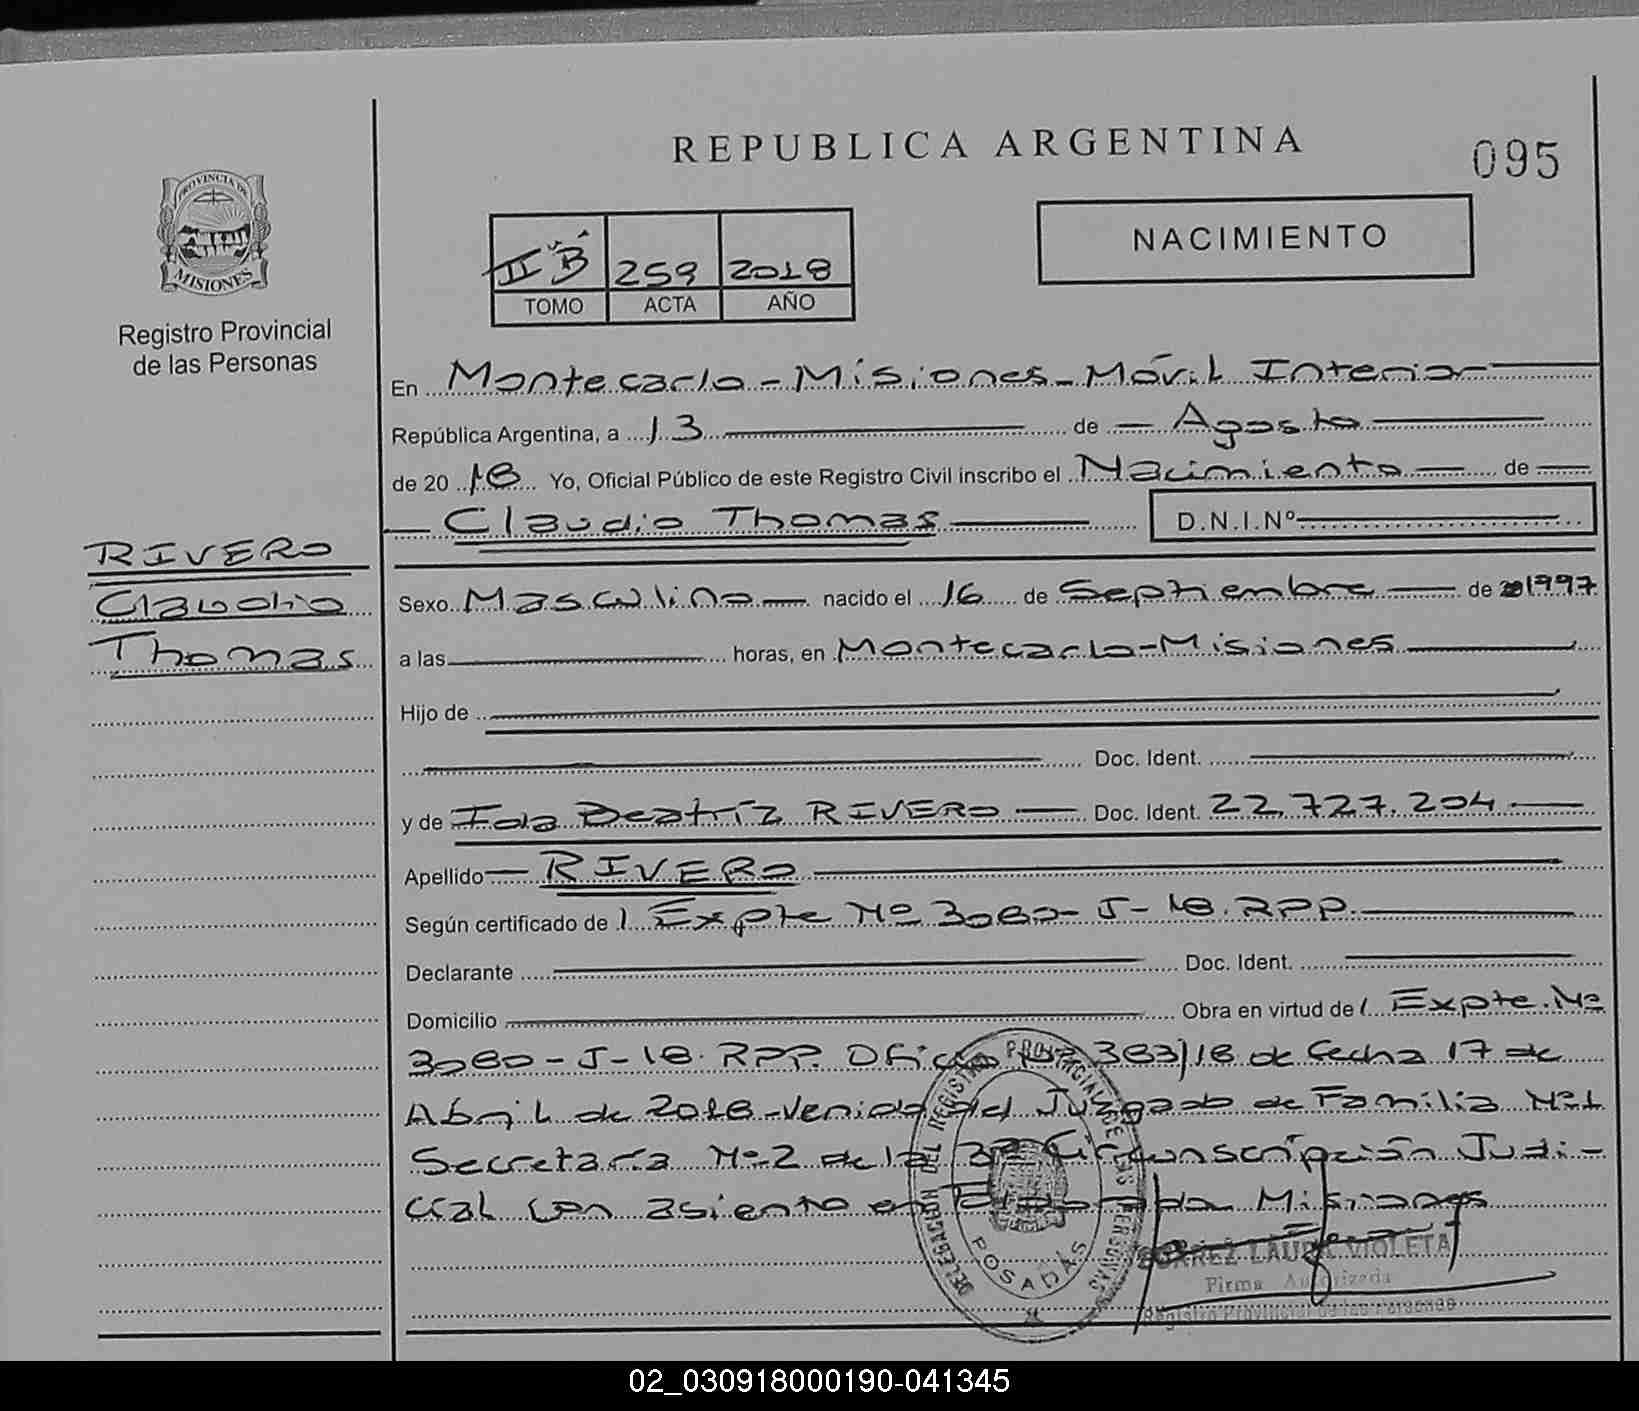 REPUBLICA ARGENTINA
095
PROVINCIA DE
MISIONES
Registro Provincial
de las Personas
NACIMIENTO
II "B" 259 2018
TOMO ACTA AÑO
En Montecarlo - Misiones - Móvil Interior
República Argentina, a 13 de Agosto
de 20 18 Yo, Oficial Público de este Registro Civil inscribo el Nacimiento de
Claudio Thomas D.N.I.Nº
RIVERO
Claudio
Thomas
Sexo Masculino nacido el 16 de Septiembre de 1997
a las horas, en Montecarlo - Misiones
Hijo de
Doc. Ident.
y de Ida Beatríz RIVERO Doc. Ident. 22.727.204
Apellido RIVERO
Según certificado de Expte Nº 3080-J-18. RPP.
Declarante Doc. Ident.
Domicilio Obra en virtud de Expte. Nº
3080-J-18. RPP. Oficio Nº 383/18 de fecha 17 de
Abril de 2018 - venido del Juzgado de Familia Nº 1
Secretaría Nº 2 de la 3ª Circunscripción Judi-
cial con asiento en Eldorado Misiones
DELEGACION DEL REGISTRO PROVINCIAL DE LAS PERSONAS
POSADAS
LAURA VIOLETA
Firma Autorizada
Registro Provincial de las Personas
02_030918000190-041345